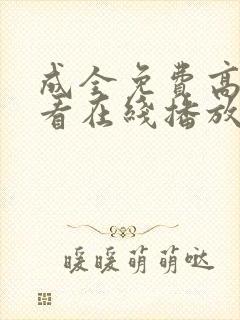 成全免费高
看在线播放
暖暖萌萌哒